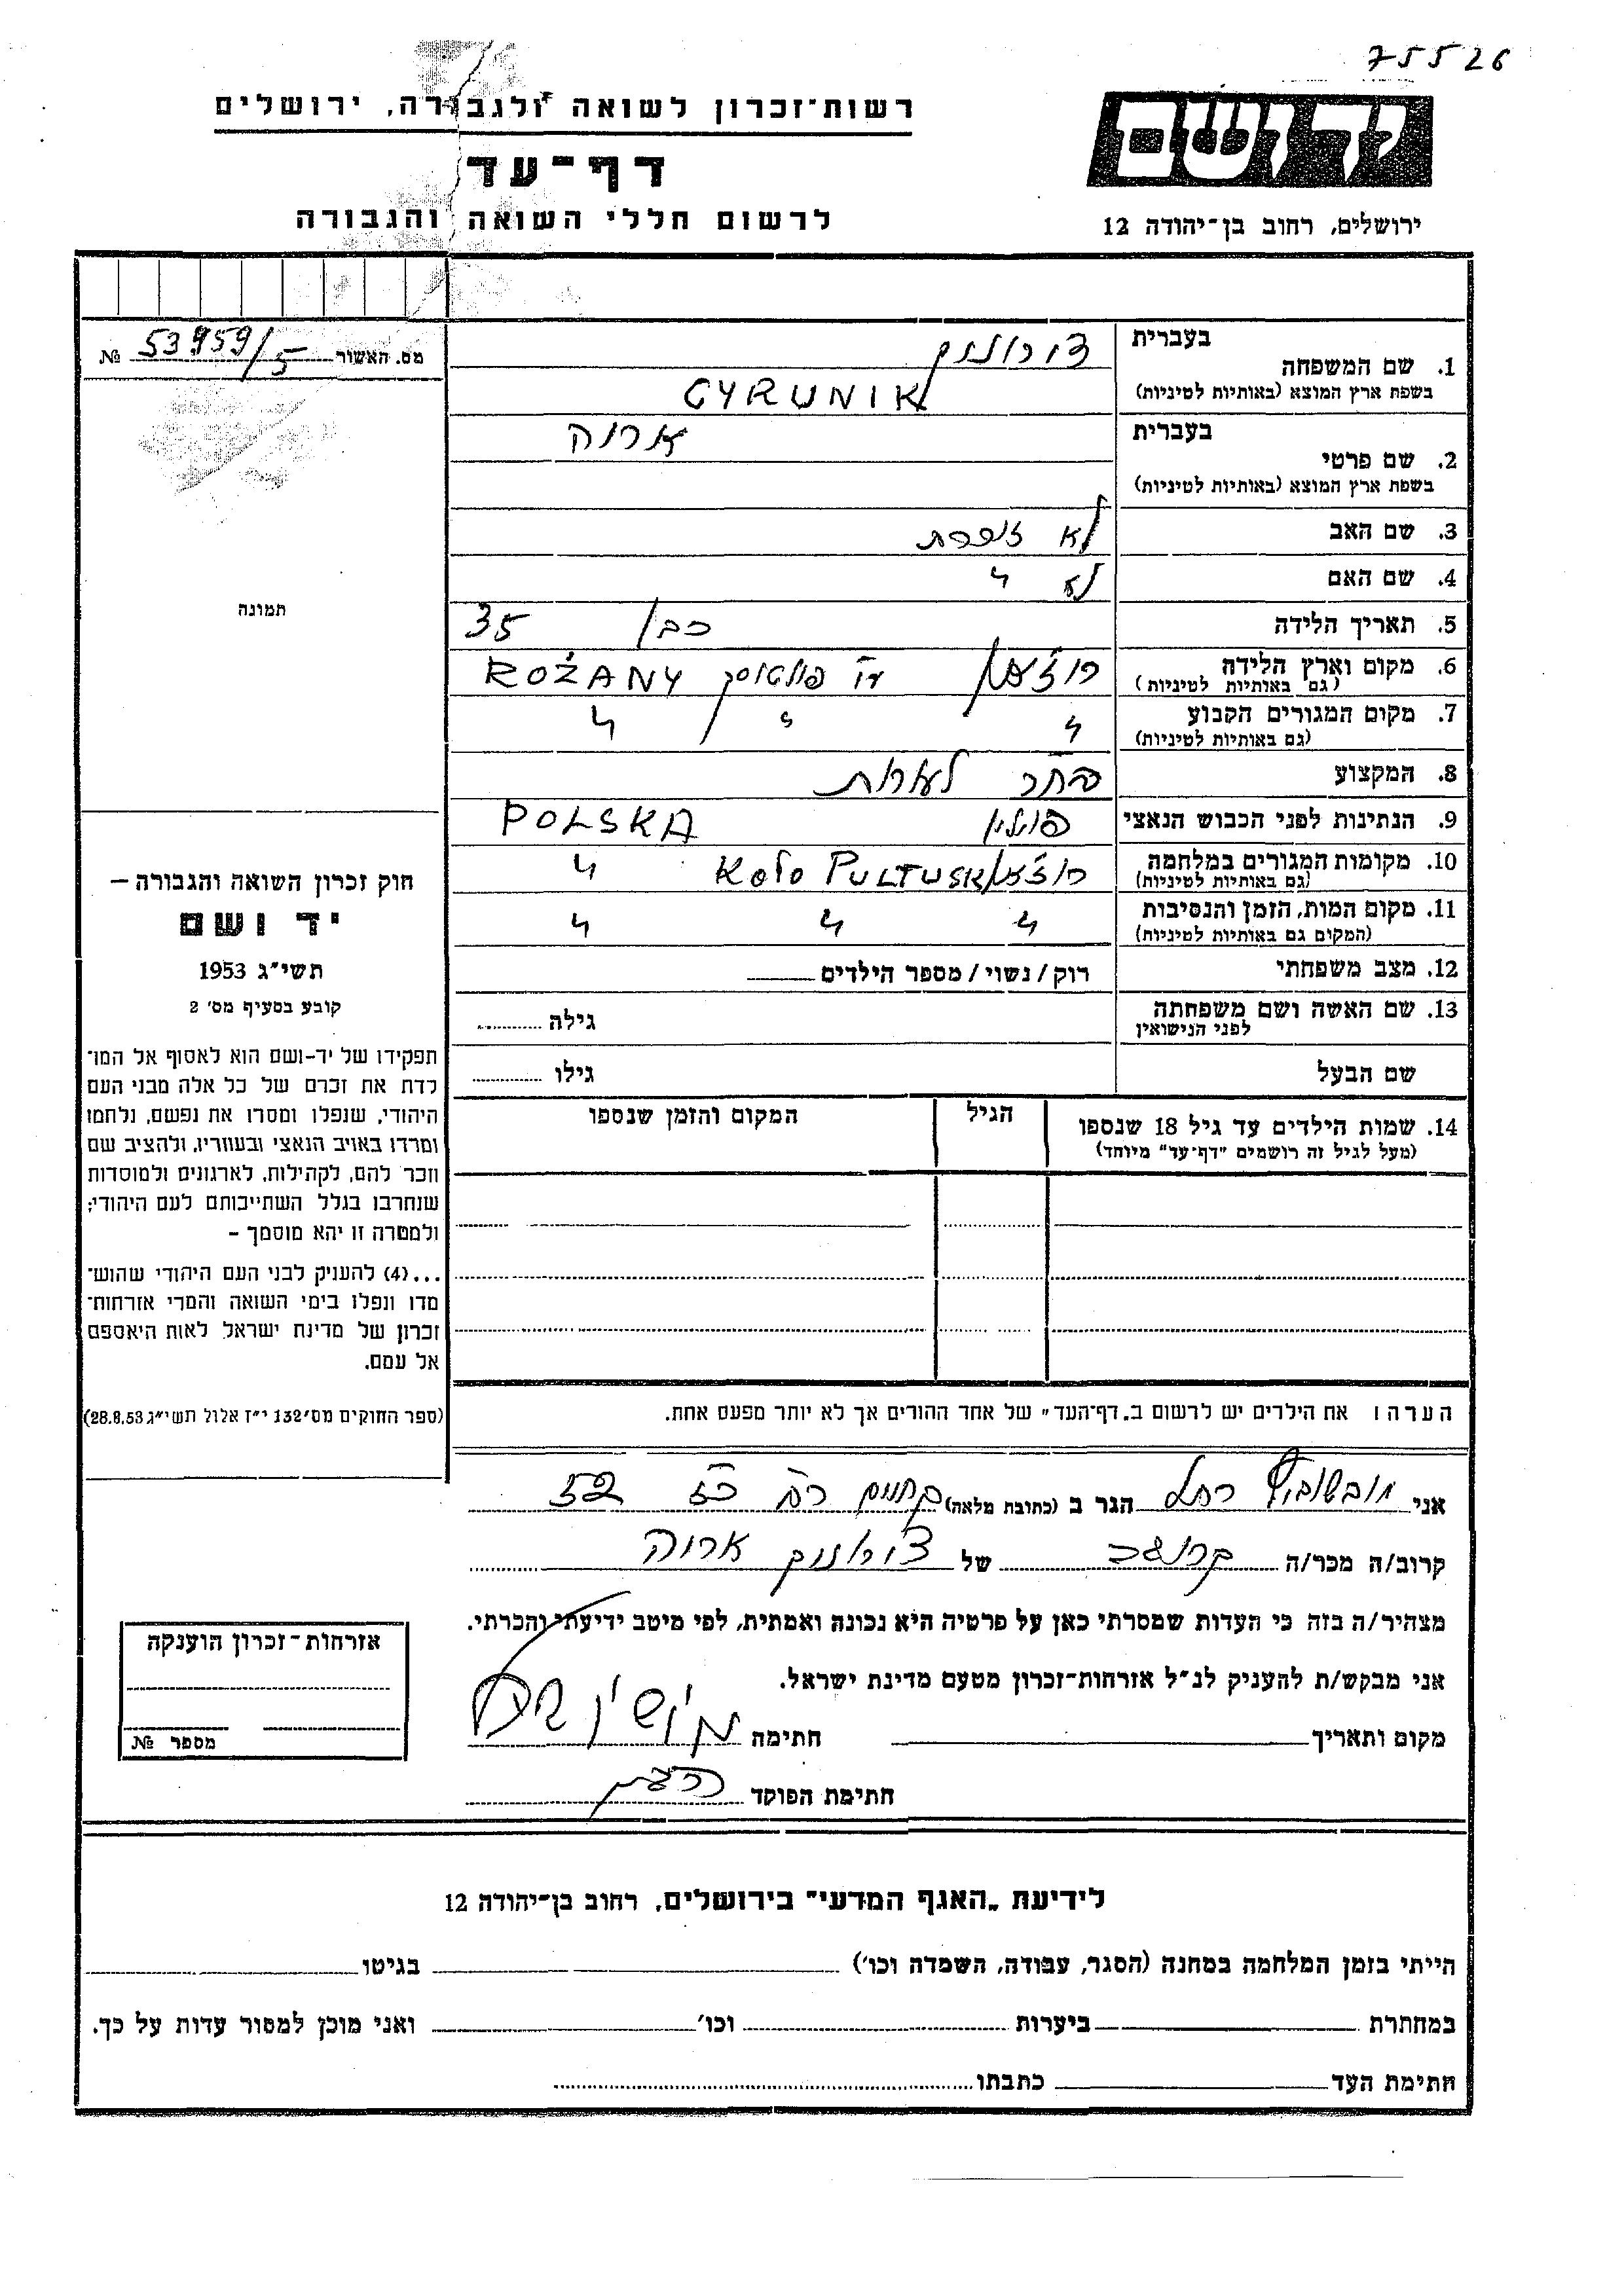 75526
רשות־זכרון לשואה ולגבורה, ירושלים
יד ושם
דף־עד
לרשום חללי השואה והגבורה
ירושלים, רחוב בן־יהודה 12
מס. האשור 53959/5 №
תמונה
בעברית צירולניק
1. שם המשפחה
בשפת ארץ המוצא (באותיות לטיניות) CYRUNIK
בעברית אריה
2. שם פרטי
בשפת ארץ המוצא (באותיות לטיניות)
3. שם האב לא זוכרת
4. שם האם לא "
5. תאריך הלידה כבן 35
6. מקום וארץ הלידה רוז'אן ע"י פולטוסק ROŻANY
(גם באותיות לטיניות)
7. מקום המגורים הקבוע " " "
(גם באותיות לטיניות)
8. המקצוע סוחר
9. הנתינות לפני הכבוש הנאצי פולין POLSKA
10. מקומות המגורים במלחמה רוז'אן KOŁO PULTUSK "
(גם באותיות לטיניות)
11. מקום המות, הזמן והנסיבות " " "
(המקום גם באותיות לטיניות)
12. מצב משפחתי רוק/נשוי/מספר הילדים
13. שם האשה ושם משפחתה
לפני הנישואין גילה
שם הבעל גילו
14. שמות הילדים עד גיל 18 שנספו הגיל המקום והזמן שנספו
(מעל לגיל זה רושמים "דף־עד" מיוחד)
חוק זכרון השואה והגבורה –
יד ושם
תשי״ג 1953
קובע בסעיף מס׳ 2
תפקידו של יד-ושם הוא לאסוף אל המו־
לדת את זכרם של כל אלה מבני העם
היהודי, שנפלו ומסרו את נפשם, נלחמו
ומרדו באויב הנאצי ובעוזריו, ולהציב שם
וזכר להם, לקהילות, לארגונים ולמוסדות
שנחרבו בגלל השתייכותם לעם היהודי;
ולמטרה זו יהא מוסמך –
...(4) להעניק לבני העם היהודי שהוש־
מדו ונפלו בימי השואה והמרי אזרחות־
זכרון של מדינת ישראל לאות היאספם
אל עמם.
(ספר החוקים מס׳ 132 י״ז אלול תשי״ג 28.8.53)
הערה: את הילדים יש לרשום ב„דף־העד" של אחד ההורים אך לא יותר מפעם אחת.
אני רחל הגר ב (כתובת מלאה) 52
קרוב/ה מכר/ה של צירולניק אריה
מצהיר/ה בזה כי העדות שמסרתי כאן על פרטיה היא נכונה ואמתית, לפי מיטב ידיעתי והכרתי.
אני מבקש/ת להעניק לנ״ל אזרחות־זכרון מטעם מדינת ישראל.
מקום ותאריך חתימה
חתימת הפוקד
אזרחות־זכרון הוענקה
מספר №
לידיעת „האגף המדעי" בירושלים, רחוב בן־יהודה 12
הייתי בזמן המלחמה במחנה (הסגר, עבודה, השמדה וכו׳) בגיטו
במחתרת ביערות וכו׳ ואני מוכן למסור עדות על כך.
חתימת העד כתבתו